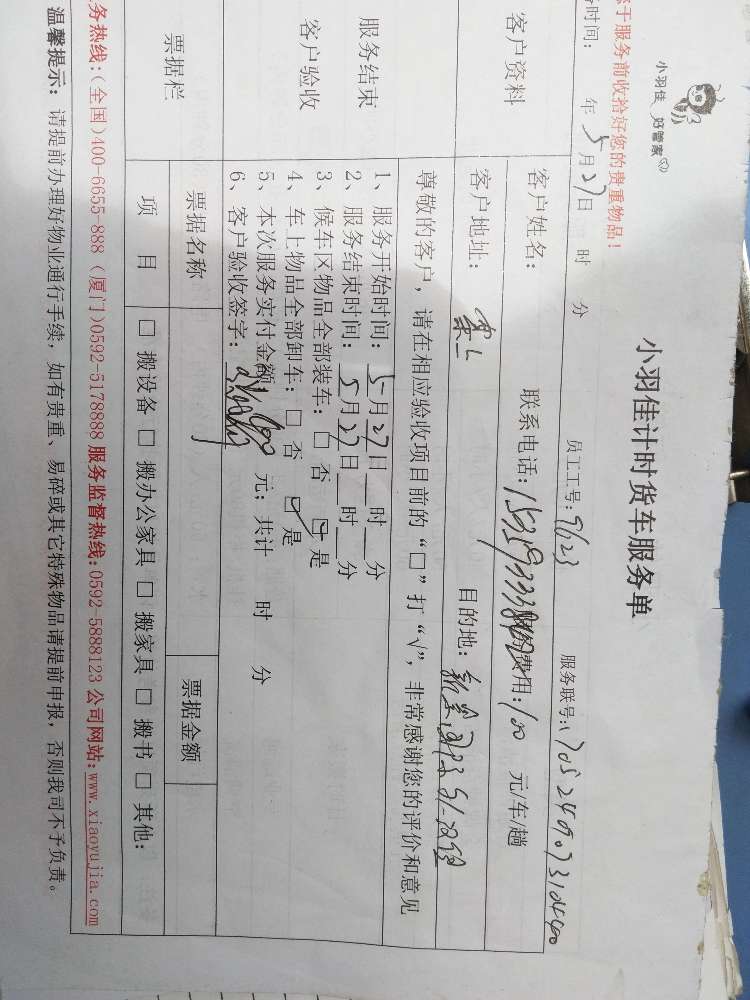 小羽佳 好管家
小羽佳计时货车服务单
于服务前收拾好您的贵重物品!
时间: 年 5月27日 时 分 员工工号:9623 服务联号:
客户资料
客户姓名: 联系电话: 费用:100 元/车/趟
客户地址: 目的地:
尊敬的客户，请在相应验收项目前的“□”打“√”，非常感谢您的评价和意见
服务结束
客户验收
1、服务开始时间: 5月27日__时__分
2、服务结束时间: 5月27日__时__分
3、候车区物品全部装车: □ 否 ☑ 是
4、车上物品全部卸车: □ 否 ☑ 是
5、本次服务实付金额 元; 共计 时 分
6、客户验收签字:
票据栏
票据名称 票据金额
项 目 □ 搬设备 □ 搬办公家具 □ 搬家具 □ 搬书 □ 其他:
务热线:(全国)400-6655-888 (厦门)0592-5178888 服务监督热线:0592-5888123 公司网站:www.xiaoyujia.com
温馨提示: 请提前办理好物业通行手续，如有贵重、易碎或其它特殊物品请提前申报，否则我司不予负责。